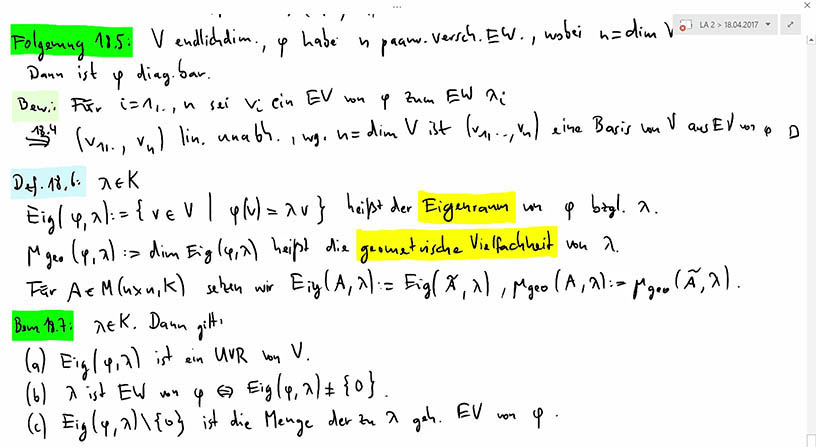 LA 2 > 18.04.2017
Folgerung 18.5: V endlichdim., φ habe n paarw. versch. EW., wobei n = dim V
Dann ist φ diag.bar.
Bew.: Für i=1,..,n sei vᵢ ein EV von φ zum EW λᵢ
18.4 ⇒ (v₁,.., vₙ) lin. unabh., wg. n = dim V ist (v₁,..,vₙ) eine Basis von V aus EV von φ □
Def. 18.6: λ∈K
Eig(φ,λ) := { v∈V | φ(v) = λv } heißt der Eigenraum von φ bzgl. λ.
μgeo(φ,λ) := dim Eig(φ,λ) heißt die geometrische Vielfachheit von λ.
Für A∈M(n×n,K) setzen wir Eig(A,λ) := Eig(Ã,λ), μgeo(A,λ) := μgeo(Ã,λ).
Bem 18.7: λ∈K. Dann gilt:
(a) Eig(φ,λ) ist ein UVR von V.
(b) λ ist EW von φ ⇔ Eig(φ,λ) ≠ {0}.
(c) Eig(φ,λ)\{0} ist die Menge der zu λ geh. EV von φ.